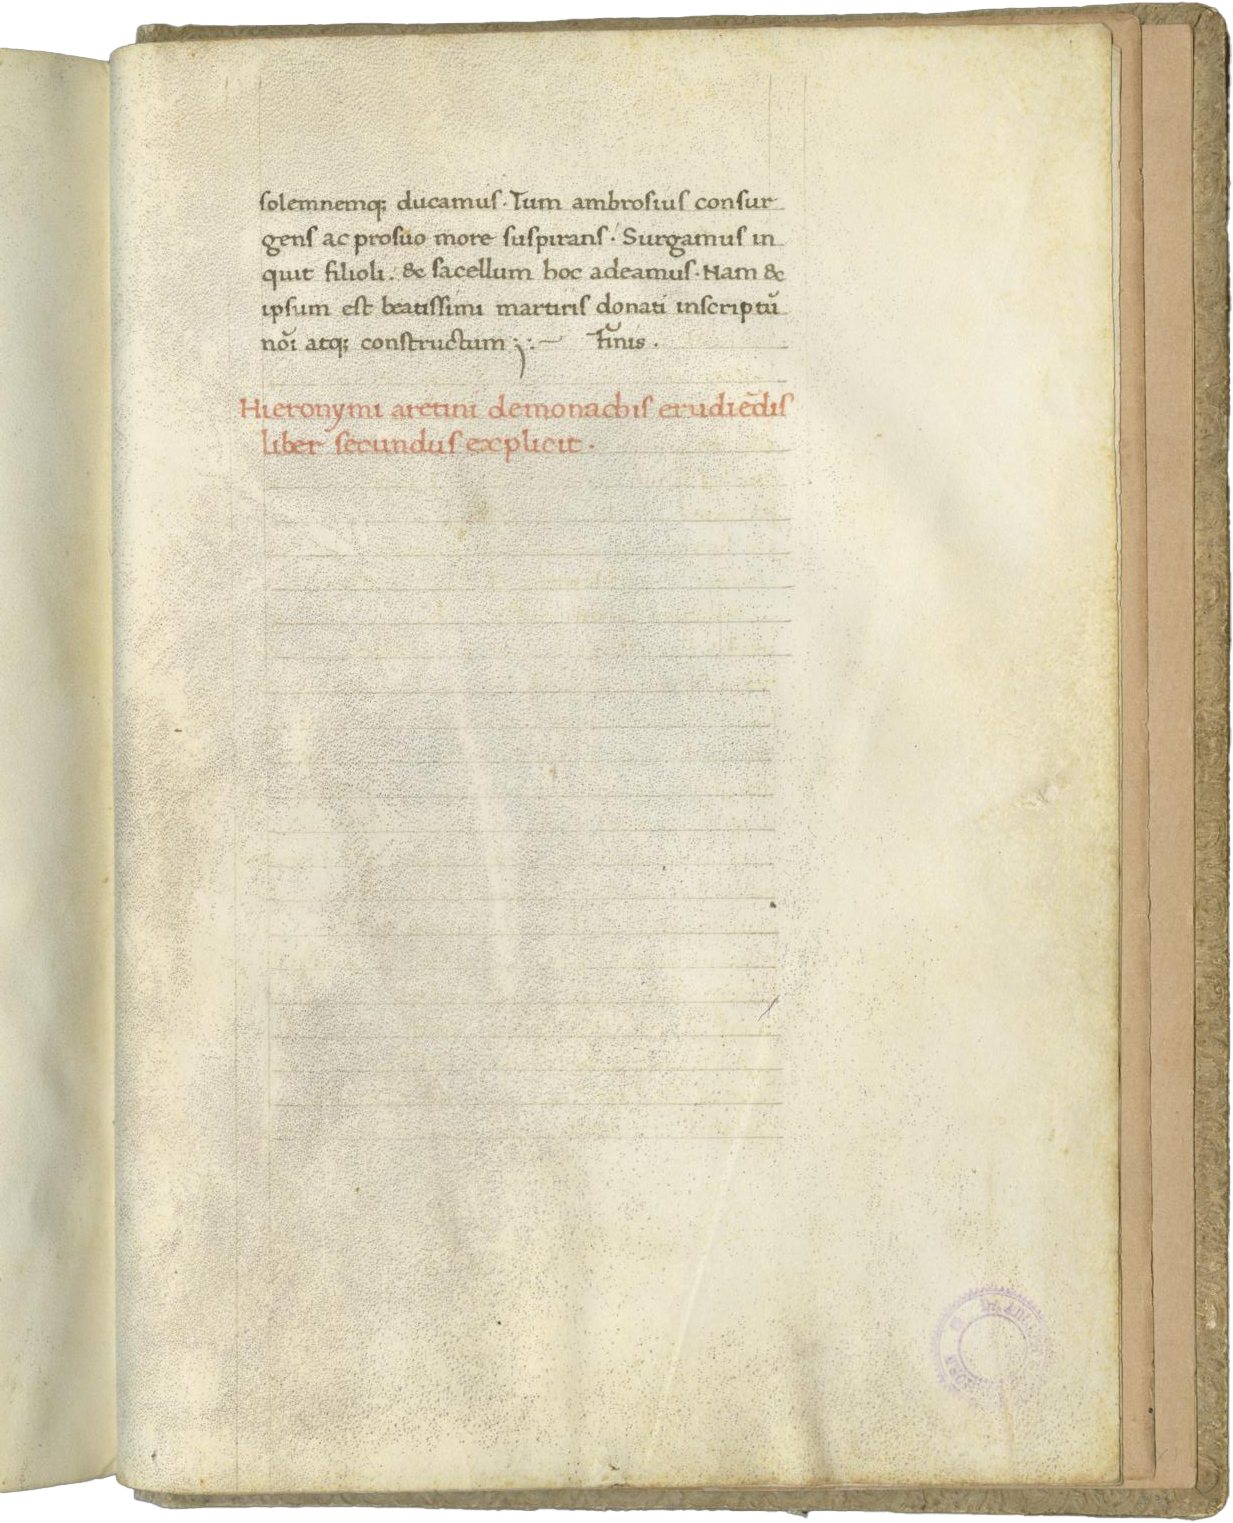 solemnemq; ducamus. Tum ambrosius consur
gens ac prosuo more suspirans. Surgamus in
quit filioli. & sacellum hoc adeamus. Nam &
ipsum est beatissimi martiris donati inscriptū
nōi atq; constructum ;:~ Finis .
Hieronymi aretini demonachis erudiēdis
liber secundus explicit .